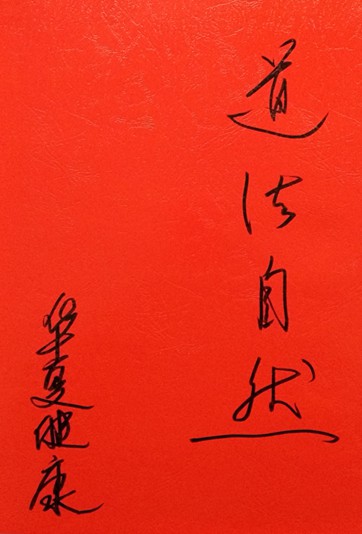 道法自然
华夏健康